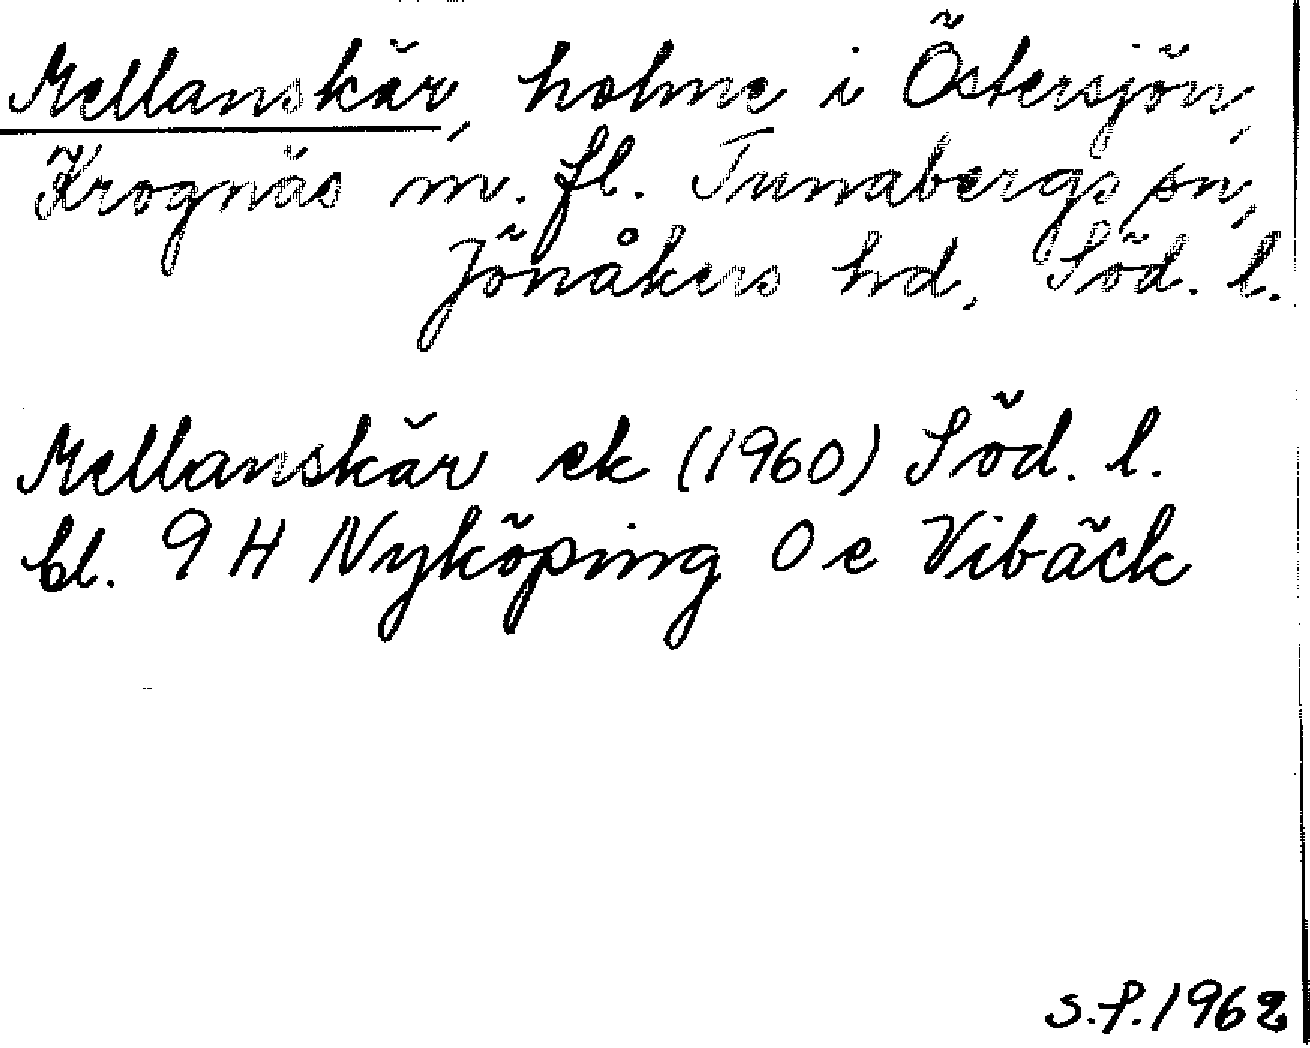 Mellanskär, holme i Östersjön,
Krognäs m. fl. Tunabergs sn,
Jönåkers hd, Söd. l.
Mellanskär ek (1960) Söd. l.
bl. 9 H Nyköping 0 e Vibäck
s.f. 1962